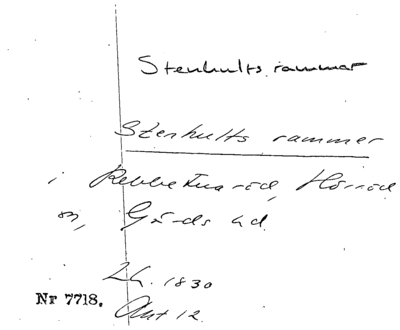 Stenhults rammar
Stenhults rammar
i Rebbetuaröd, Hörröd
sn, Gärds hd.
Lh. 1830
Nr 7718.
Akt 12.